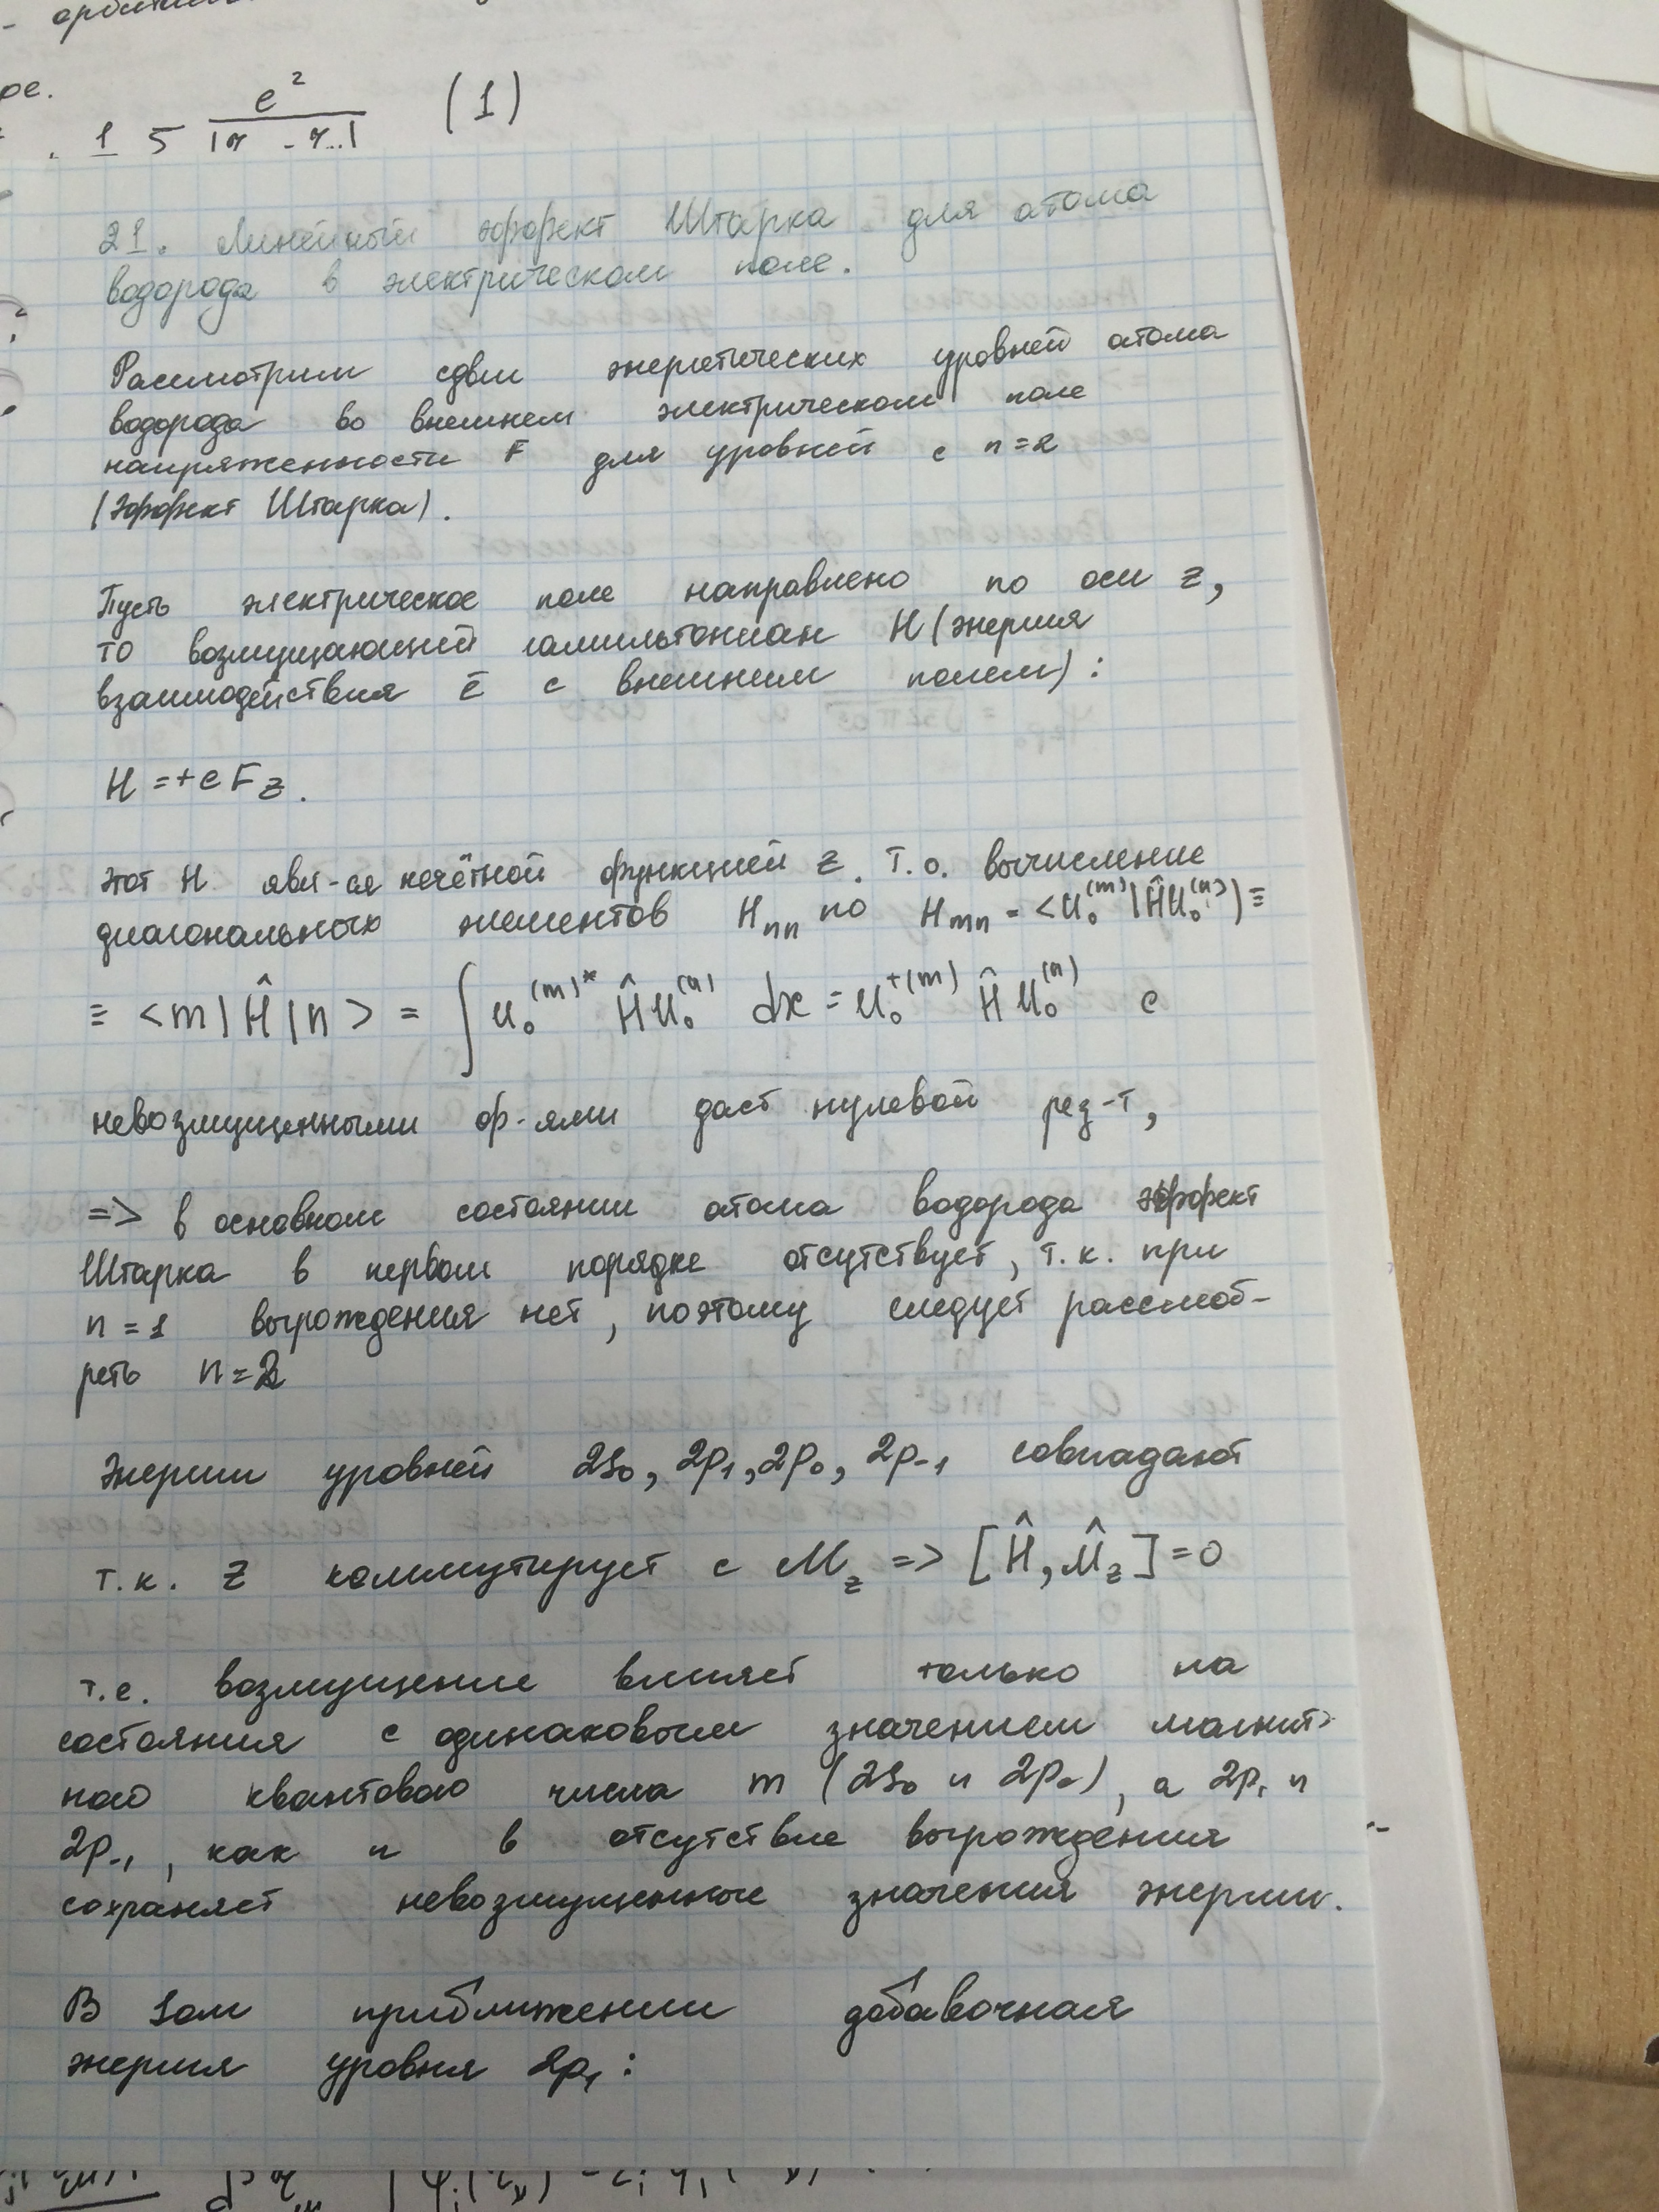 e²
1 5 |r - r..| (1)
21. Линейный эффект Штарка для атома
водорода в электрическом поле.
Рассмотрим сдвиг энергетических уровней атома
водорода во внешнем электрическом поле
напряженности F для уровней с n=2
(Эффект Штарка).
Пусть электрическое поле направлено по оси z,
то возмущающий гамильтониан H (энергия
взаимодействия ē с внешним полем):
H =+eFz.
Этот H явл-ся нечётной функцией z. Т.о. вычисление
диагональных элементов Hₙₙ по Hₘₙ = <U₀⁽ᵐ⁾|ĤU₀⁽ⁿ⁾>) ≡
≡ <m|Ĥ|n> = ∫ U₀⁽ᵐ⁾* ĤU₀⁽ⁿ⁾ dx = U₀⁺⁽ᵐ⁾ ĤU₀⁽ⁿ⁾ с
невозмущенными ф-ями даст нулевой рез-т,
=> в основном состоянии атома водорода эффект
Штарка в первом порядке отсутствует, т.к. при
n=1 вырождения нет, поэтому следует рассмот-
реть n=2
Энергии уровней 2s₀, 2p₁, 2p₀, 2p₋₁ совпадают
т.к. z коммутирует с M_z => [Ĥ, M̂_z]=0
т.е. возмущение влияет только на
состояния с одинаковым значением магнит-
ного квантового числа m (2s₀ и 2p₀), а 2p₁ и
2p₋₁, как и в отсутствие вырождения
сохраняет невозмущенные значения энергии.
В 1ом приближении добавочная
энергия уровня 2p₁: